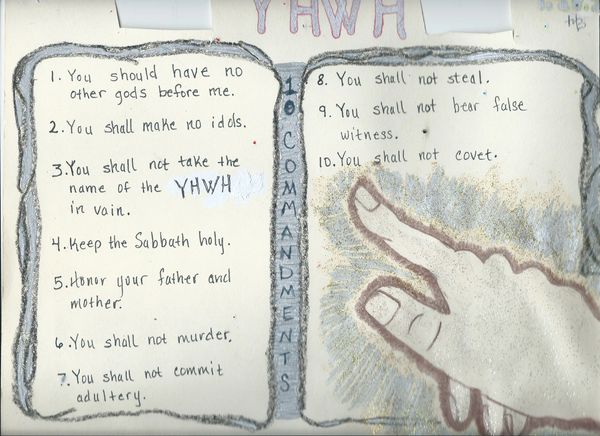 YHWH
1. You should have no
other gods before me.
2. You shall make no idols.
3. You shall not take the
name of the YHWH
in vain.
4. Keep the Sabbath holy.
5. Honor your father and
mother.
6. You shall not murder.
7. You shall not commit
adultery.
10 COMMANDMENTS
8. You shall not steal.
9. You shall not bear false
witness.
10. You shall not covet.